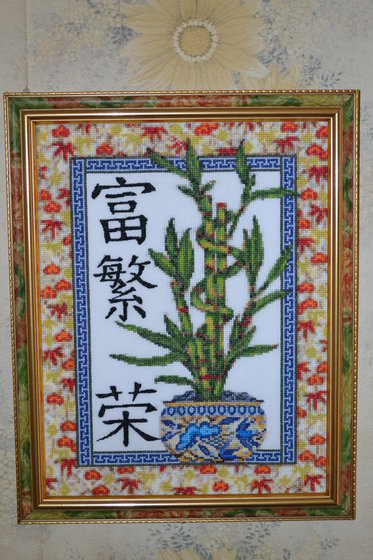 富
繁
荣